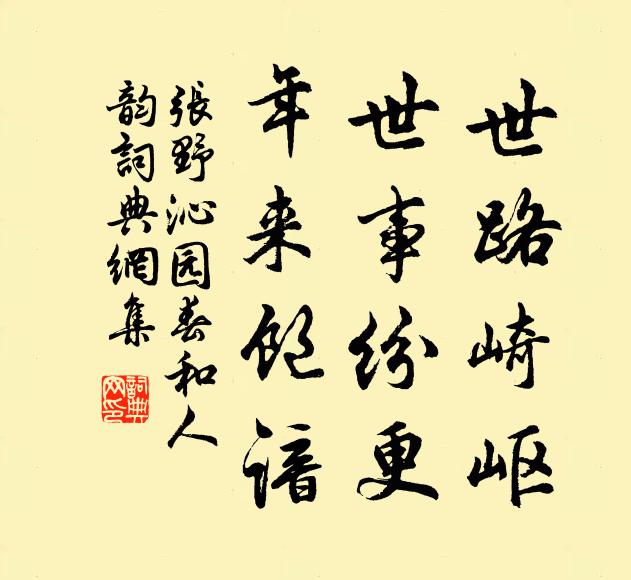 世路崎岖
世事纷更
年来饱谙
張野沁园春和人
韵詞典網集
詞典网印